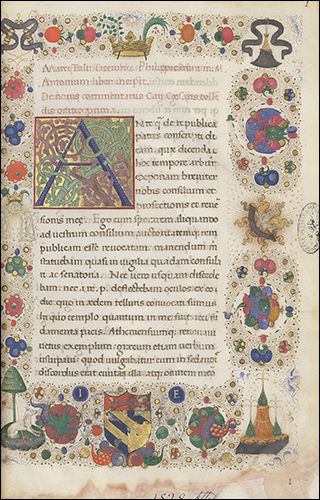 M. Tulii Ciceronis Philippicarum in M.
Antonium liber incipit.
Nte q̄ de re publica
patres conscripti di
cam que dicenda
hoc tempore arbitror
exponam breviter
vobis consilium et
profectionis et rever
sionis meę. Ego cum sperarem aliquando
ad vestrum consilium auctoritatemq rem
publicam esse revocatam manendum mi
statuebam quasi in vigilia quadam consula
ri ac senatoria. Nec vero usquam discede
bam nec a re p. deiciebam oculos ex eo
die quo in aedem telluris convocati sumus
In quo templo quantum in me fuit ieci fun
damenta pacis Atheniensiumq renovavi
vetus exemplum gręcum etiam verbum
usurpavi quod
discordiis erat civitas illa atq omnem memo
I E
1